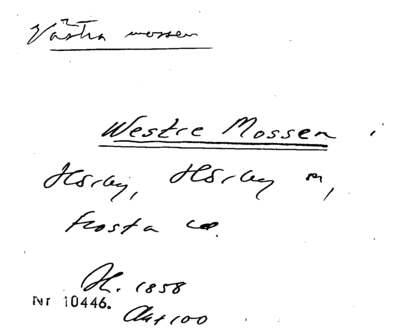 Västra mossen
Westre Mossen
Hörby, Hörby sn,
Frosta hd.
H. 1858
Nr 10446.
Akt 100